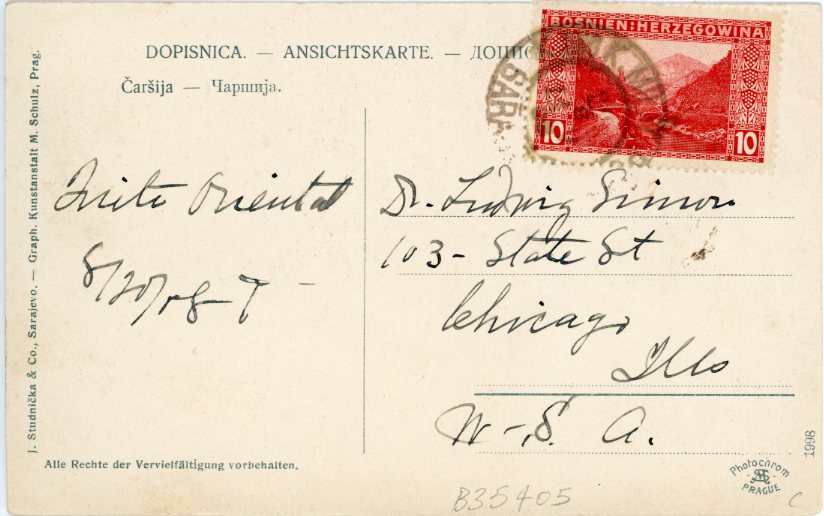 DOPISNICA. — ANSICHTSKARTE. — ДОПИС
Čaršija — Чаршија.
BOSNIEN:HERZEGOWINA
10 10
SARA
Quite Oriental
8/20/08 - T -
Dr. Ludwig Simon
103 - State St
Chicago
Ills
U.S.A.
J. Studnička & Co., Sarajevo. — Graph. Kunstanstalt M. Schulz, Prag.
Alle Rechte der Vervielfältigung vorbehalten.
1998
Photochrom
PRAGUE
B35405
C